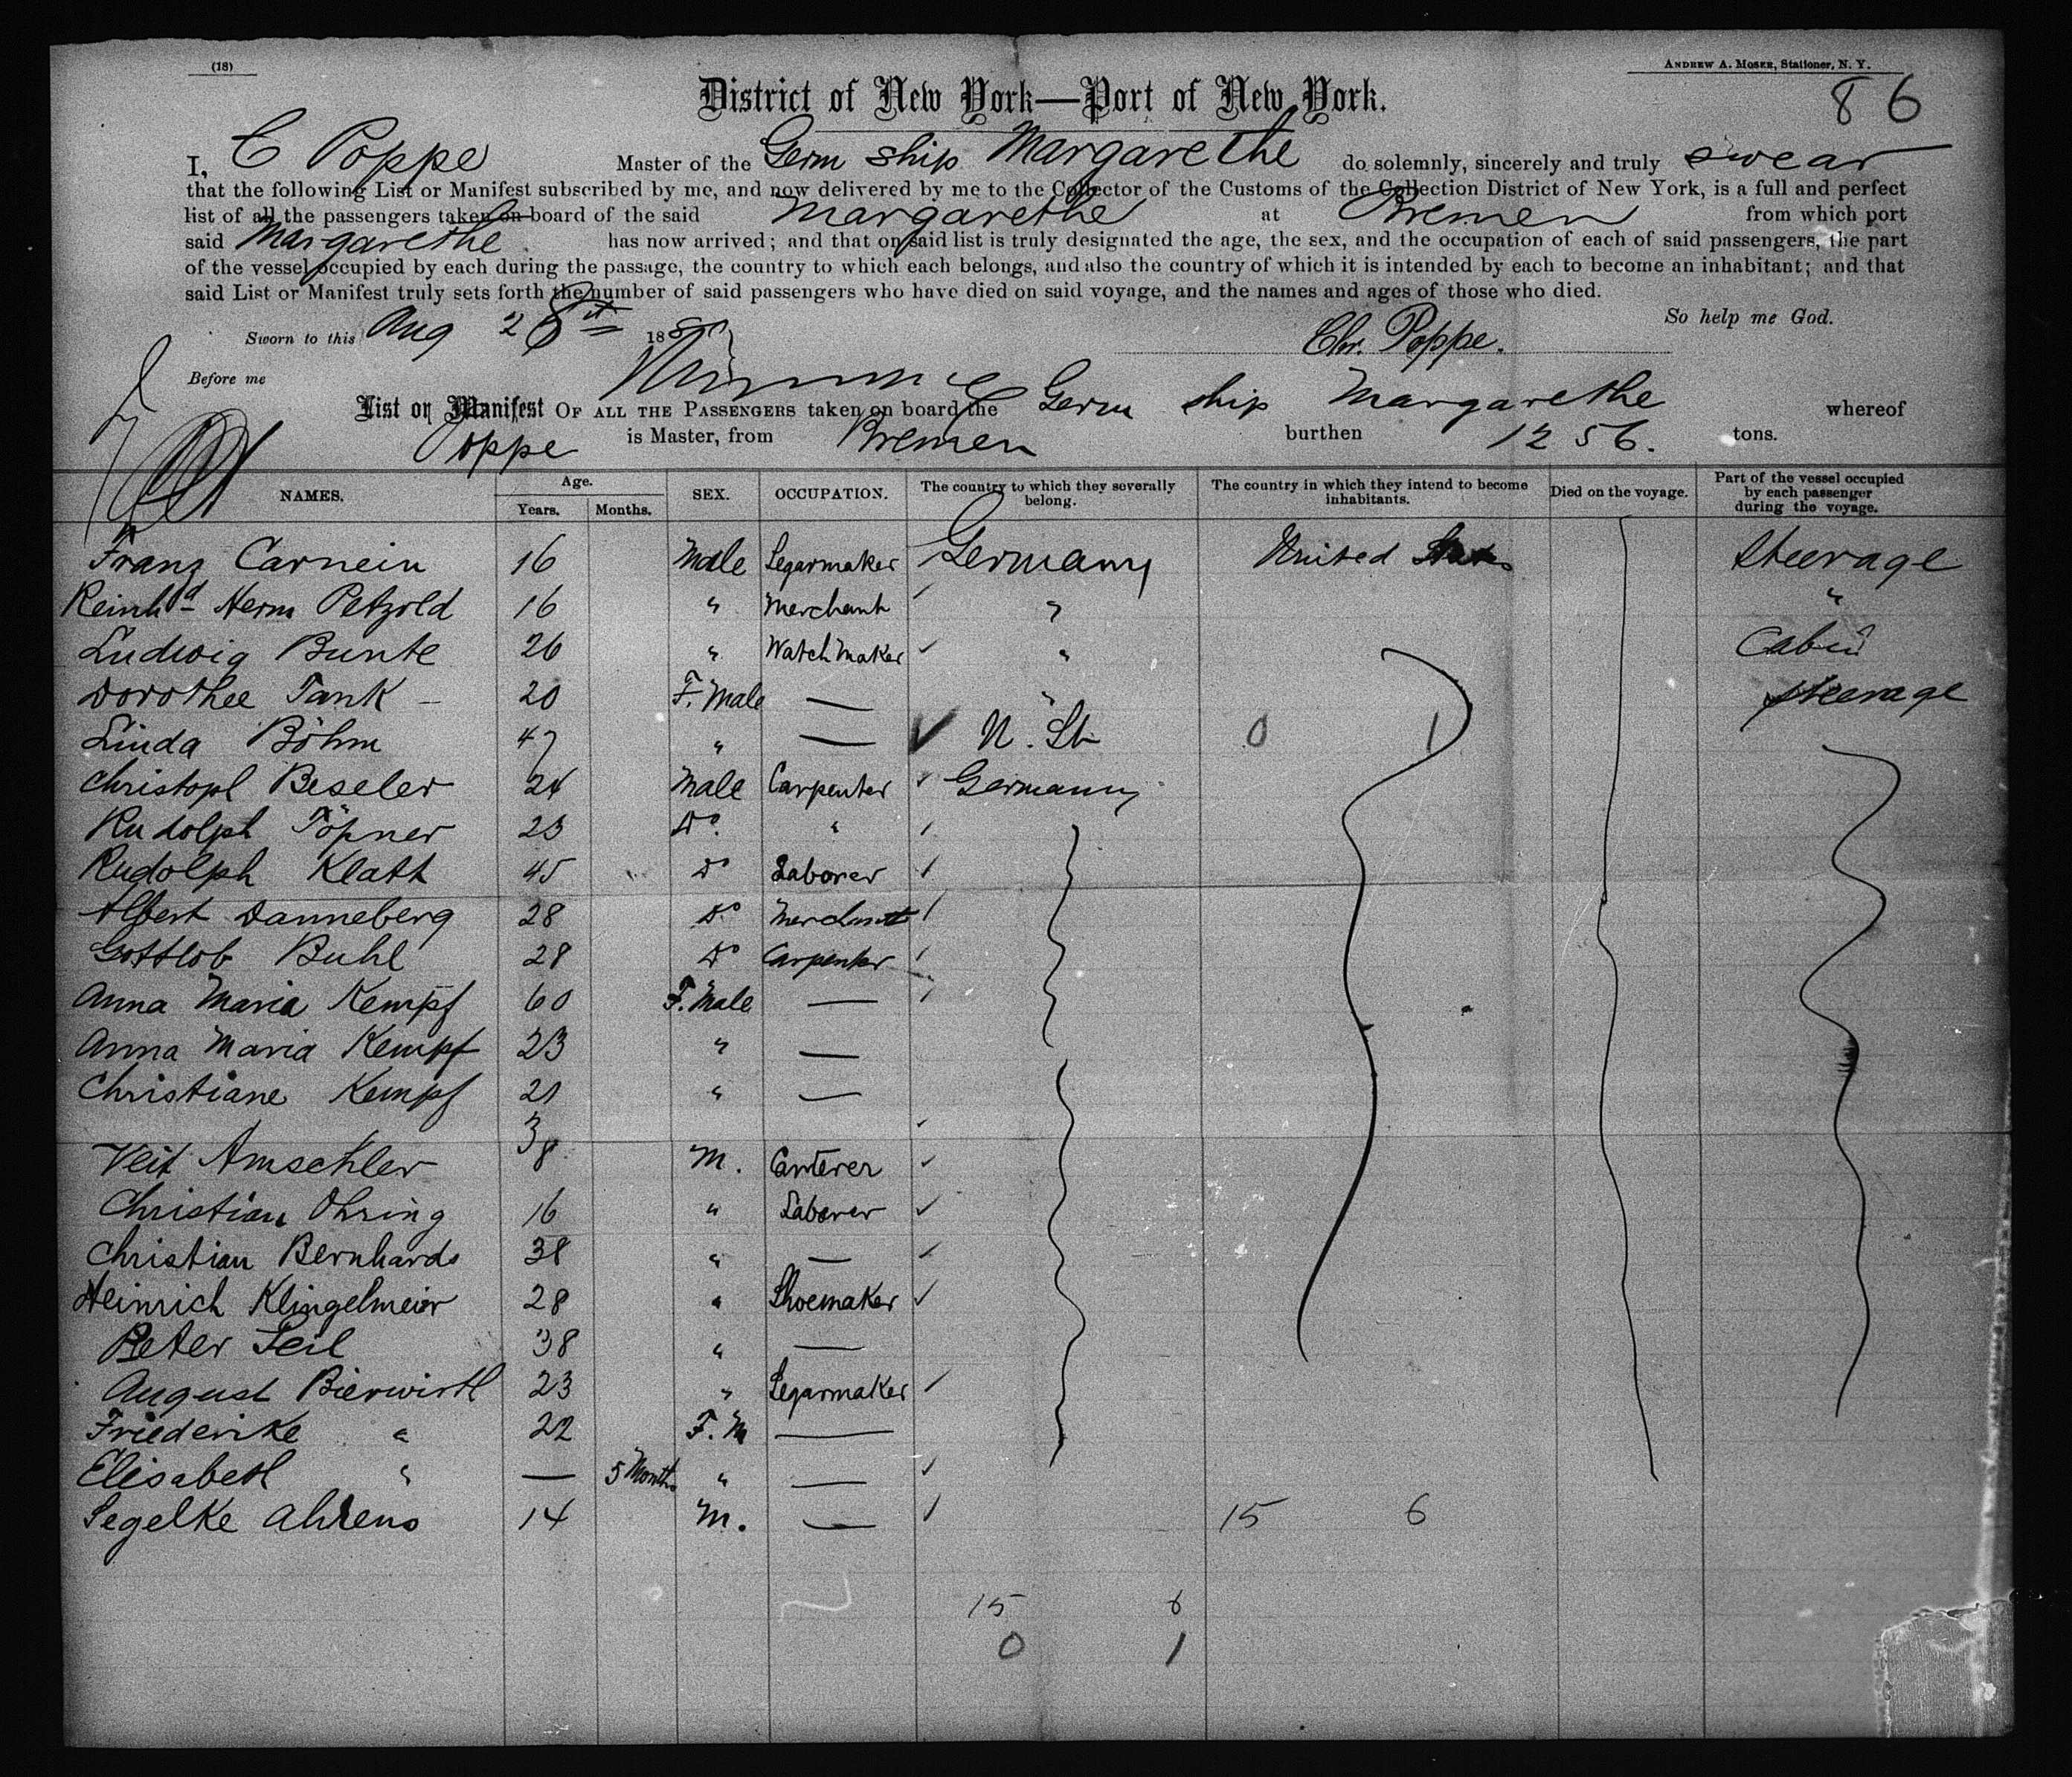 (18)
ANDREW A. MOSER, Stationer, N. Y.
86
District of New York—Port of New York.
I, C Poppe Master of the Germ ship Margarethe do solemnly, sincerely and truly swear
that the following List or Manifest subscribed by me, and now delivered by me to the Collector of the Customs of the Collection District of New York, is a full and perfect
list of all the passengers taken on board of the said Margarethe at Bremen from which port
said Margarethe has now arrived; and that on said list is truly designated the age, the sex, and the occupation of each of said passengers, the part
of the vessel occupied by each during the passage, the country to which each belongs, and also the country of which it is intended by each to become an inhabitant; and that
said List or Manifest truly sets forth the number of said passengers who have died on said voyage, and the names and ages of those who died.
So help me God.
Sworn to this Aug 188
Chr. Poppe.
Before me
List or Manifest OF ALL THE PASSENGERS taken on board the Germ ship Margarethe whereof
Poppe is Master, from Bremen burthen 1256. tons.
NAMES. Age. Years. Months. SEX. OCCUPATION. The country to which they severally belong. The country in which they intend to become inhabitants. Died on the voyage. Part of the vessel occupied by each passenger during the voyage.
Franz Carnein 16 Male Segarmaker Germany United States Steerage
Reinhd Herm Petzold 16 " Merchant " "
Ludwig Bunte 26 " Watch Maker " Cabin
Dorothee Tank – 20 F. Male — " Steerage
Linda Böhm 47 " — U. St 0 1
Christopl Beseler 24 Male Carpenter Germany
Rudolph Töpner 23 Do. "
Rudolph Klatt 45 Do Laborer
Albert Danneberg 28 Do Merchant
Gottlob Buhl 28 Do Carpenter
Anna Maria Kempf 60 F. Male —
Anna Maria Kempf 23 " —
Christiane Kempf 21 " —
Veit Amschler 38 M.
Christian Ohring 16 " Laborer
Christian Bernhards 38 " —
Heinrich Klingelmeier 28 " Shoemaker
Peter Seil 38 " —
August Bierwirth 23 " Segarmaker
Friederike " 22 F. M —
Elisabeth " — 5 Months " —
Segelke Ahrens 14 M. — 15 6
15 6
0 1